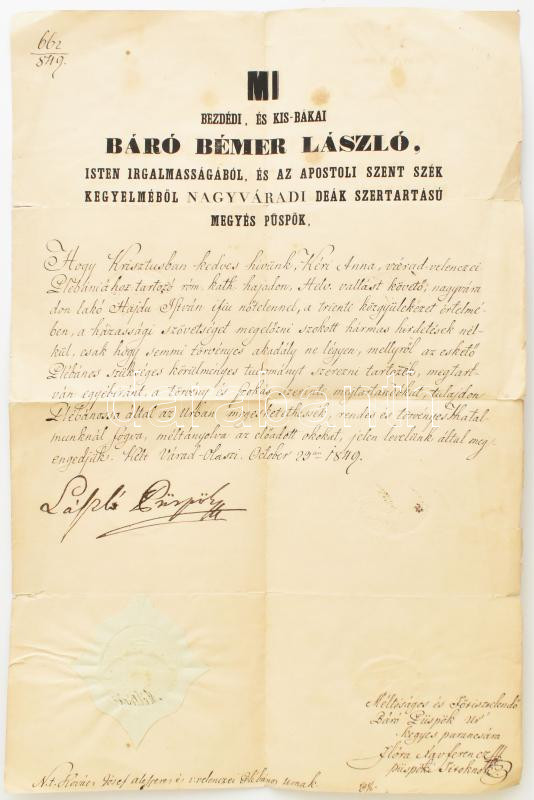 662
849.
MI
BEZDÉDI, ÉS KIS-BÁKAI
BÁRÓ BÉMER LÁSZLÓ,
ISTEN IRGALMASSÁGÁBÓL, ÉS AZ APOSTOLI SZENT SZÉK
KEGYELMÉBŐL NAGYVÁRADI DEÁK SZERTARTÁSÚ
MEGYÉS PÜSPÖK,
Hogy Krisztusban kedves hivünk, Kéri Anna, várad-velenczei
Plébániához tartozó róm. kath. hajadon, Helv. vallást követő, nagyvára
don lakó Hajdu István ifiu nőtelennel, a trienti közgyülekezet értelmé-
ben, a házassági szövetséget megelőzni szokott hármas hirdetések nél-
kül, csak hogy semmi törvényes akadály ne légyen, mellyről az eskető
Plébános szükséges körülményes tudományt szerezni tartozik, megtart-
ván egyébiránt, a törvény és szokás szerint megtartandókat, tulajdon
Plébánossa által az Urban összeskettethessék, rendes és törvényes hatal
munknál fogva, méltányolva az előadott okokat, jelen levelünk által meg-
engedjük. Kelt Várad-Olaszi. October 29én 1849.
László Püspök
Méltóságos és Főtisztelendő
Báró Püspök Úr
kegyes parancsára
Flóra Ferencz
püspöki Titoknok
N.t. József alesperes és v. velenczei Plébános urnak.